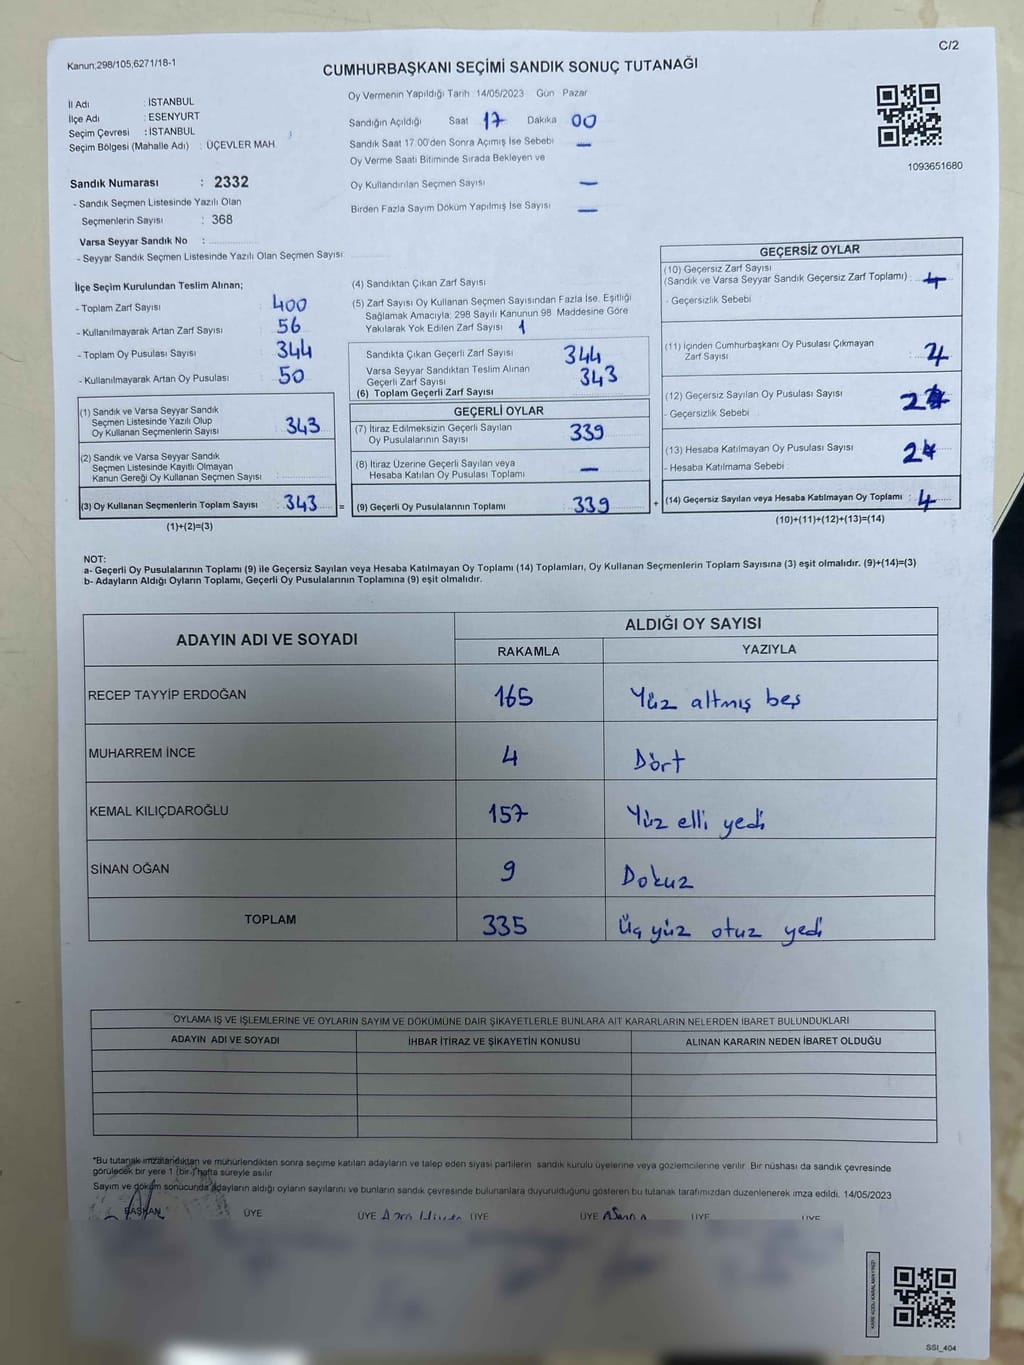 C/2
Kanun;298/105,6271/18-1
CUMHURBAŞKANI SEÇİMİ SANDIK SONUÇ TUTANAĞI
İl Adı : İSTANBUL
İlçe Adı : ESENYURT
Seçim Çevresi : İSTANBUL
Seçim Bölgesi (Mahalle Adı) : ÜÇEVLER MAH.
Sandık Numarası : 2332
- Sandık Seçmen Listesinde Yazılı Olan
Seçmenlerin Sayısı : 368
Varsa Seyyar Sandık No :
- Seyyar Sandık Seçmen Listesinde Yazılı Olan Seçmen Sayısı:
Oy Vermenin Yapıldığı Tarih : 14/05/2023 Gün Pazar
Sandığın Açıldığı Saat 17 Dakika 00
Sandık Saat 17.00'den Sonra Açımış İse Sebebi —
Oy Verme Saati Bitiminde Sırada Bekleyen ve
Oy Kullandırılan Seçmen Sayısı —
Birden Fazla Sayım Döküm Yapılmış İse Sayısı —
1093651680
İlçe Seçim Kurulundan Teslim Alınan;
- Toplam Zarf Sayısı : 400
- Kullanılmayarak Artan Zarf Sayısı : 56
- Toplam Oy Pusulası Sayısı : 344
- Kullanılmayarak Artan Oy Pusulası : 50
(1) Sandık ve Varsa Seyyar Sandık
Seçmen Listesinde Yazılı Olup
Oy Kullanan Seçmenlerin Sayısı : 343
(2) Sandık ve Varsa Seyyar Sandık
Seçmen Listesinde Kayıtlı Olmayan
Kanun Gereği Oy Kullanan Seçmen Sayısı :
(3) Oy Kullanan Seçmenlerin Toplam Sayısı : 343 =
(1)+(2)=(3)
(4) Sandıktan Çıkan Zarf Sayısı
(5) Zarf Sayısı Oy Kullanan Seçmen Sayısından Fazla İse, Eşitliği
Sağlamak Amacıyla; 298 Sayılı Kanunun 98. Maddesine Göre
Yakılarak Yok Edilen Zarf Sayısı 1
Sandıkta Çıkan Geçerli Zarf Sayısı 344
Varsa Seyyar Sandıktan Teslim Alınan
Geçerli Zarf Sayısı 343
(6) Toplam Geçerli Zarf Sayısı
GEÇERLİ OYLAR
(7) İtiraz Edilmeksizin Geçerli Sayılan
Oy Pusulalarının Sayısı 339
(8) İtiraz Üzerine Geçerli Sayılan veya
Hesaba Katılan Oy Pusulası Toplamı —
(9) Geçerli Oy Pusulalarının Toplamı 339 +
GEÇERSİZ OYLAR
(10) Geçersiz Zarf Sayısı
(Sandık ve Varsa Seyyar Sandık Geçersiz Zarf Toplamı) :
- Geçersizlik Sebebi
(11) İçinden Cumhurbaşkanı Oy Pusulası Çıkmayan
Zarf Sayısı :
(12) Geçersiz Sayılan Oy Pusulası Sayısı 2
- Geçersizlik Sebebi
(13) Hesaba Katılmayan Oy Pusulası Sayısı 2
- Hesaba Katılmama Sebebi :
(14) Geçersiz Sayılan veya Hesaba Katılmayan Oy Toplamı : 4
(10)+(11)+(12)+(13)=(14)
NOT:
a- Geçerli Oy Pusulalarının Toplamı (9) ile Geçersiz Sayılan veya Hesaba Katılmayan Oy Toplamı (14) Toplamları, Oy Kullanan Seçmenlerin Toplam Sayısına (3) eşit olmalıdır. (9)+(14)=(3)
b- Adayların Aldığı Oyların Toplamı, Geçerli Oy Pusulalarının Toplamına (9) eşit olmalıdır.
ADAYIN ADI VE SOYADI ALDIĞI OY SAYISI
RAKAMLA YAZIYLA
RECEP TAYYİP ERDOĞAN 165 Yüz altmış beş
MUHARREM İNCE 4 Dört
KEMAL KILIÇDAROĞLU 157 Yüz elli yedi
SİNAN OĞAN 9 Dokuz
TOPLAM 335 Üç yüz otuz yedi
OYLAMA İŞ VE İŞLEMLERİNE VE OYLARIN SAYIM VE DÖKÜMÜNE DAİR ŞİKAYETLERLE BUNLARA AİT KARARLARIN NELERDEN İBARET BULUNDUKLARI
ADAYIN ADI VE SOYADI İHBAR İTİRAZ VE ŞİKAYETİN KONUSU ALINAN KARARIN NEDEN İBARET OLDUĞU
*Bu tutanak imzalandıktan ve mühürlendikten sonra seçime katılan adayların ve talep eden siyasi partilerin sandık kurulu üyelerine veya gözlemcilerine verilir. Bir nüshası da sandık çevresinde
görülecek bir yere 1 (bir) hafta süreyle asılır.
Sayım ve döküm sonucunda adayların aldığı oyların sayılarını ve bunların sandık çevresinde bulunanlara duyurulduğunu gösteren bu tutanak tarafımızdan düzenlenerek imza edildi. 14/05/2023
BAŞKAN ÜYE ÜYE ÜYE ÜYE ÜYE ÜYE
SSI_404